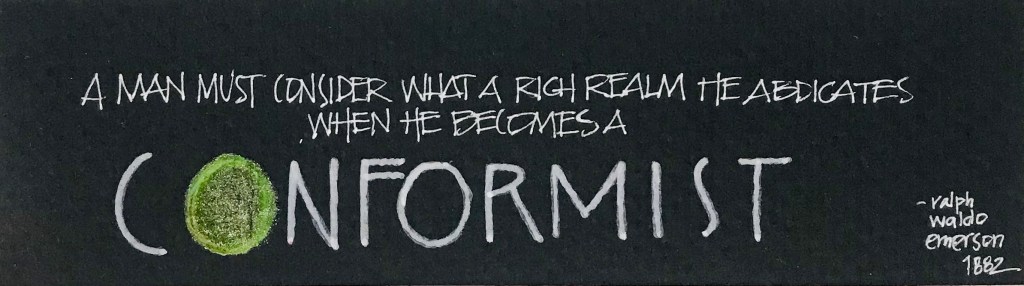 A MAN MUST CONSIDER WHAT A RICH REALM HE ABDICATES
WHEN HE BECOMES A
CONFORMIST
- ralph
waldo
emerson
1882